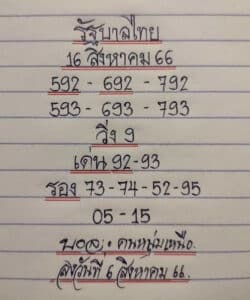 รัฐบาลไทย
16 สิงหาคม 66
592 - 692 - 792
593 - 693 - 793
วิ่ง 9
เด่น 92-93
รอง 73-74-52-95
05 - 15
บอล : คนหนุ่มเหนือ.
ส่งวันที่ 6 สิงหาคม 66.